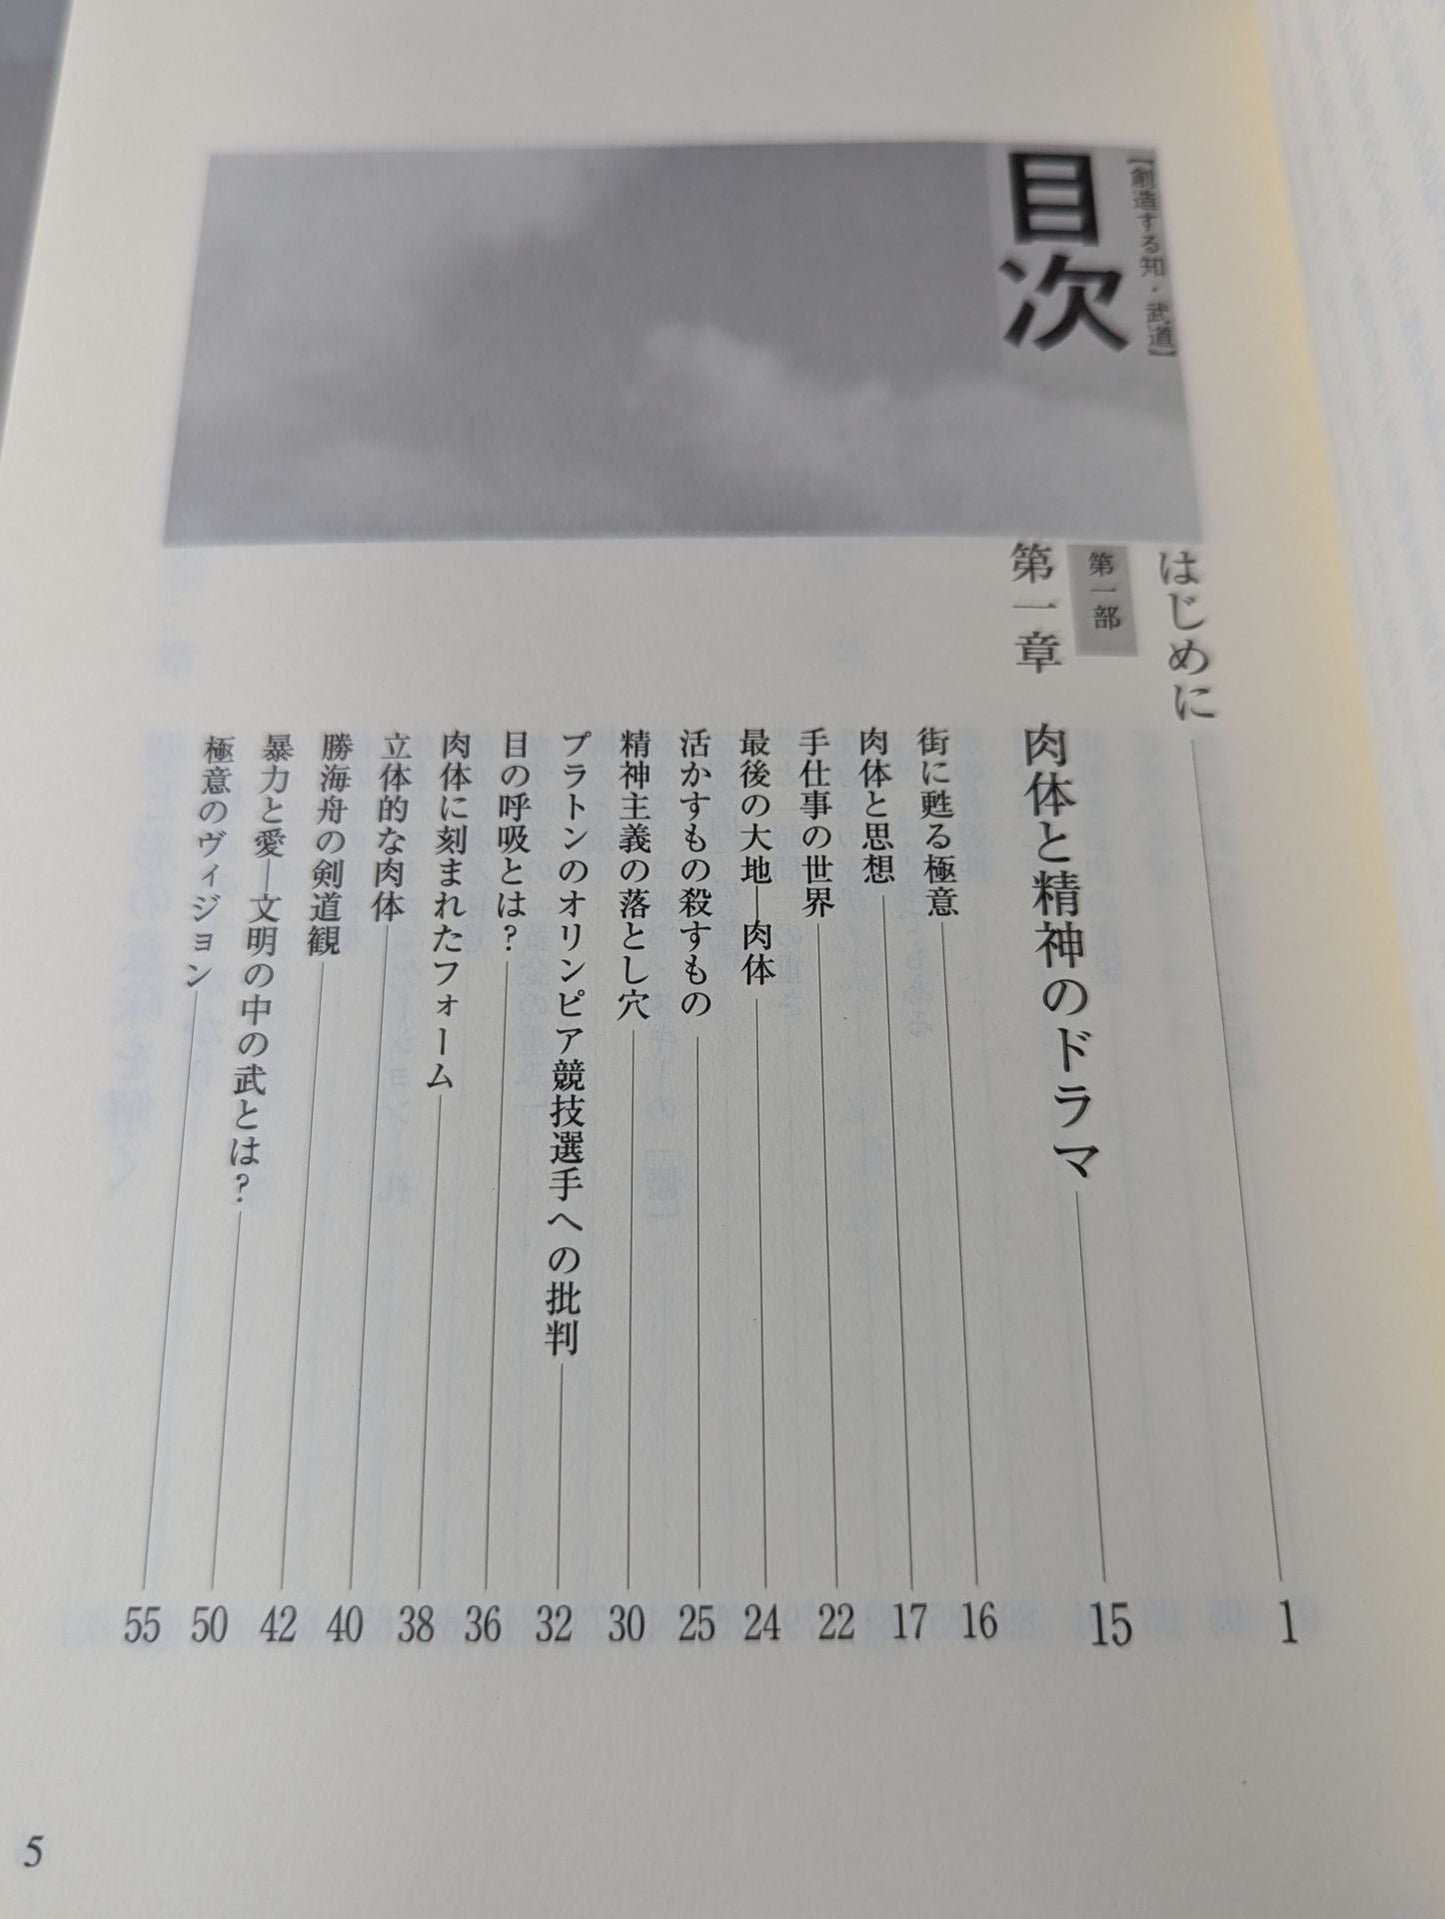 【創造する知・武道】
目次
はじめに 1
第一部
第一章 肉体と精神のドラマ 15
街に甦る極意 16
肉体と思想 17
手仕事の世界 22
最後の大地―肉体 24
活かすもの殺すもの 25
精神主義の落とし穴 30
プラトンのオリンピア競技選手への批判 32
目の呼吸とは? 36
肉体に刻まれたフォーム 38
立体的な肉体 40
勝海舟の剣道観 42
暴力と愛―文明の中の武とは? 50
極意のヴィジョン 55
5